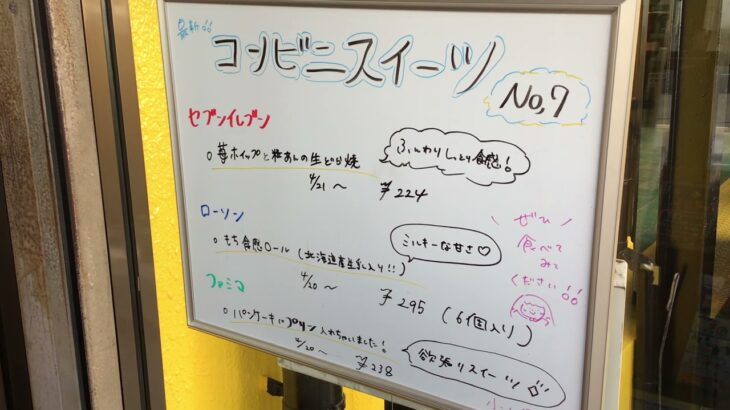 最新!!
コンビニスイーツ
No,7
セブンイレブン
○ 苺ホイップと粒あんの生どら焼
ふんわりしっとり食感!
4/21 ～ ¥224
ローソン
○ もち食感ロール (北海道産生乳入り!!)
ミルキーな甘さ♡
4/20 ～ ¥295 (6個入り)
ファミマ
○ パンケーキにプリン入れちゃいました!
4/20 ～ ¥238
欲張りスイーツ
ぜひ
食べて
みて
ください!!